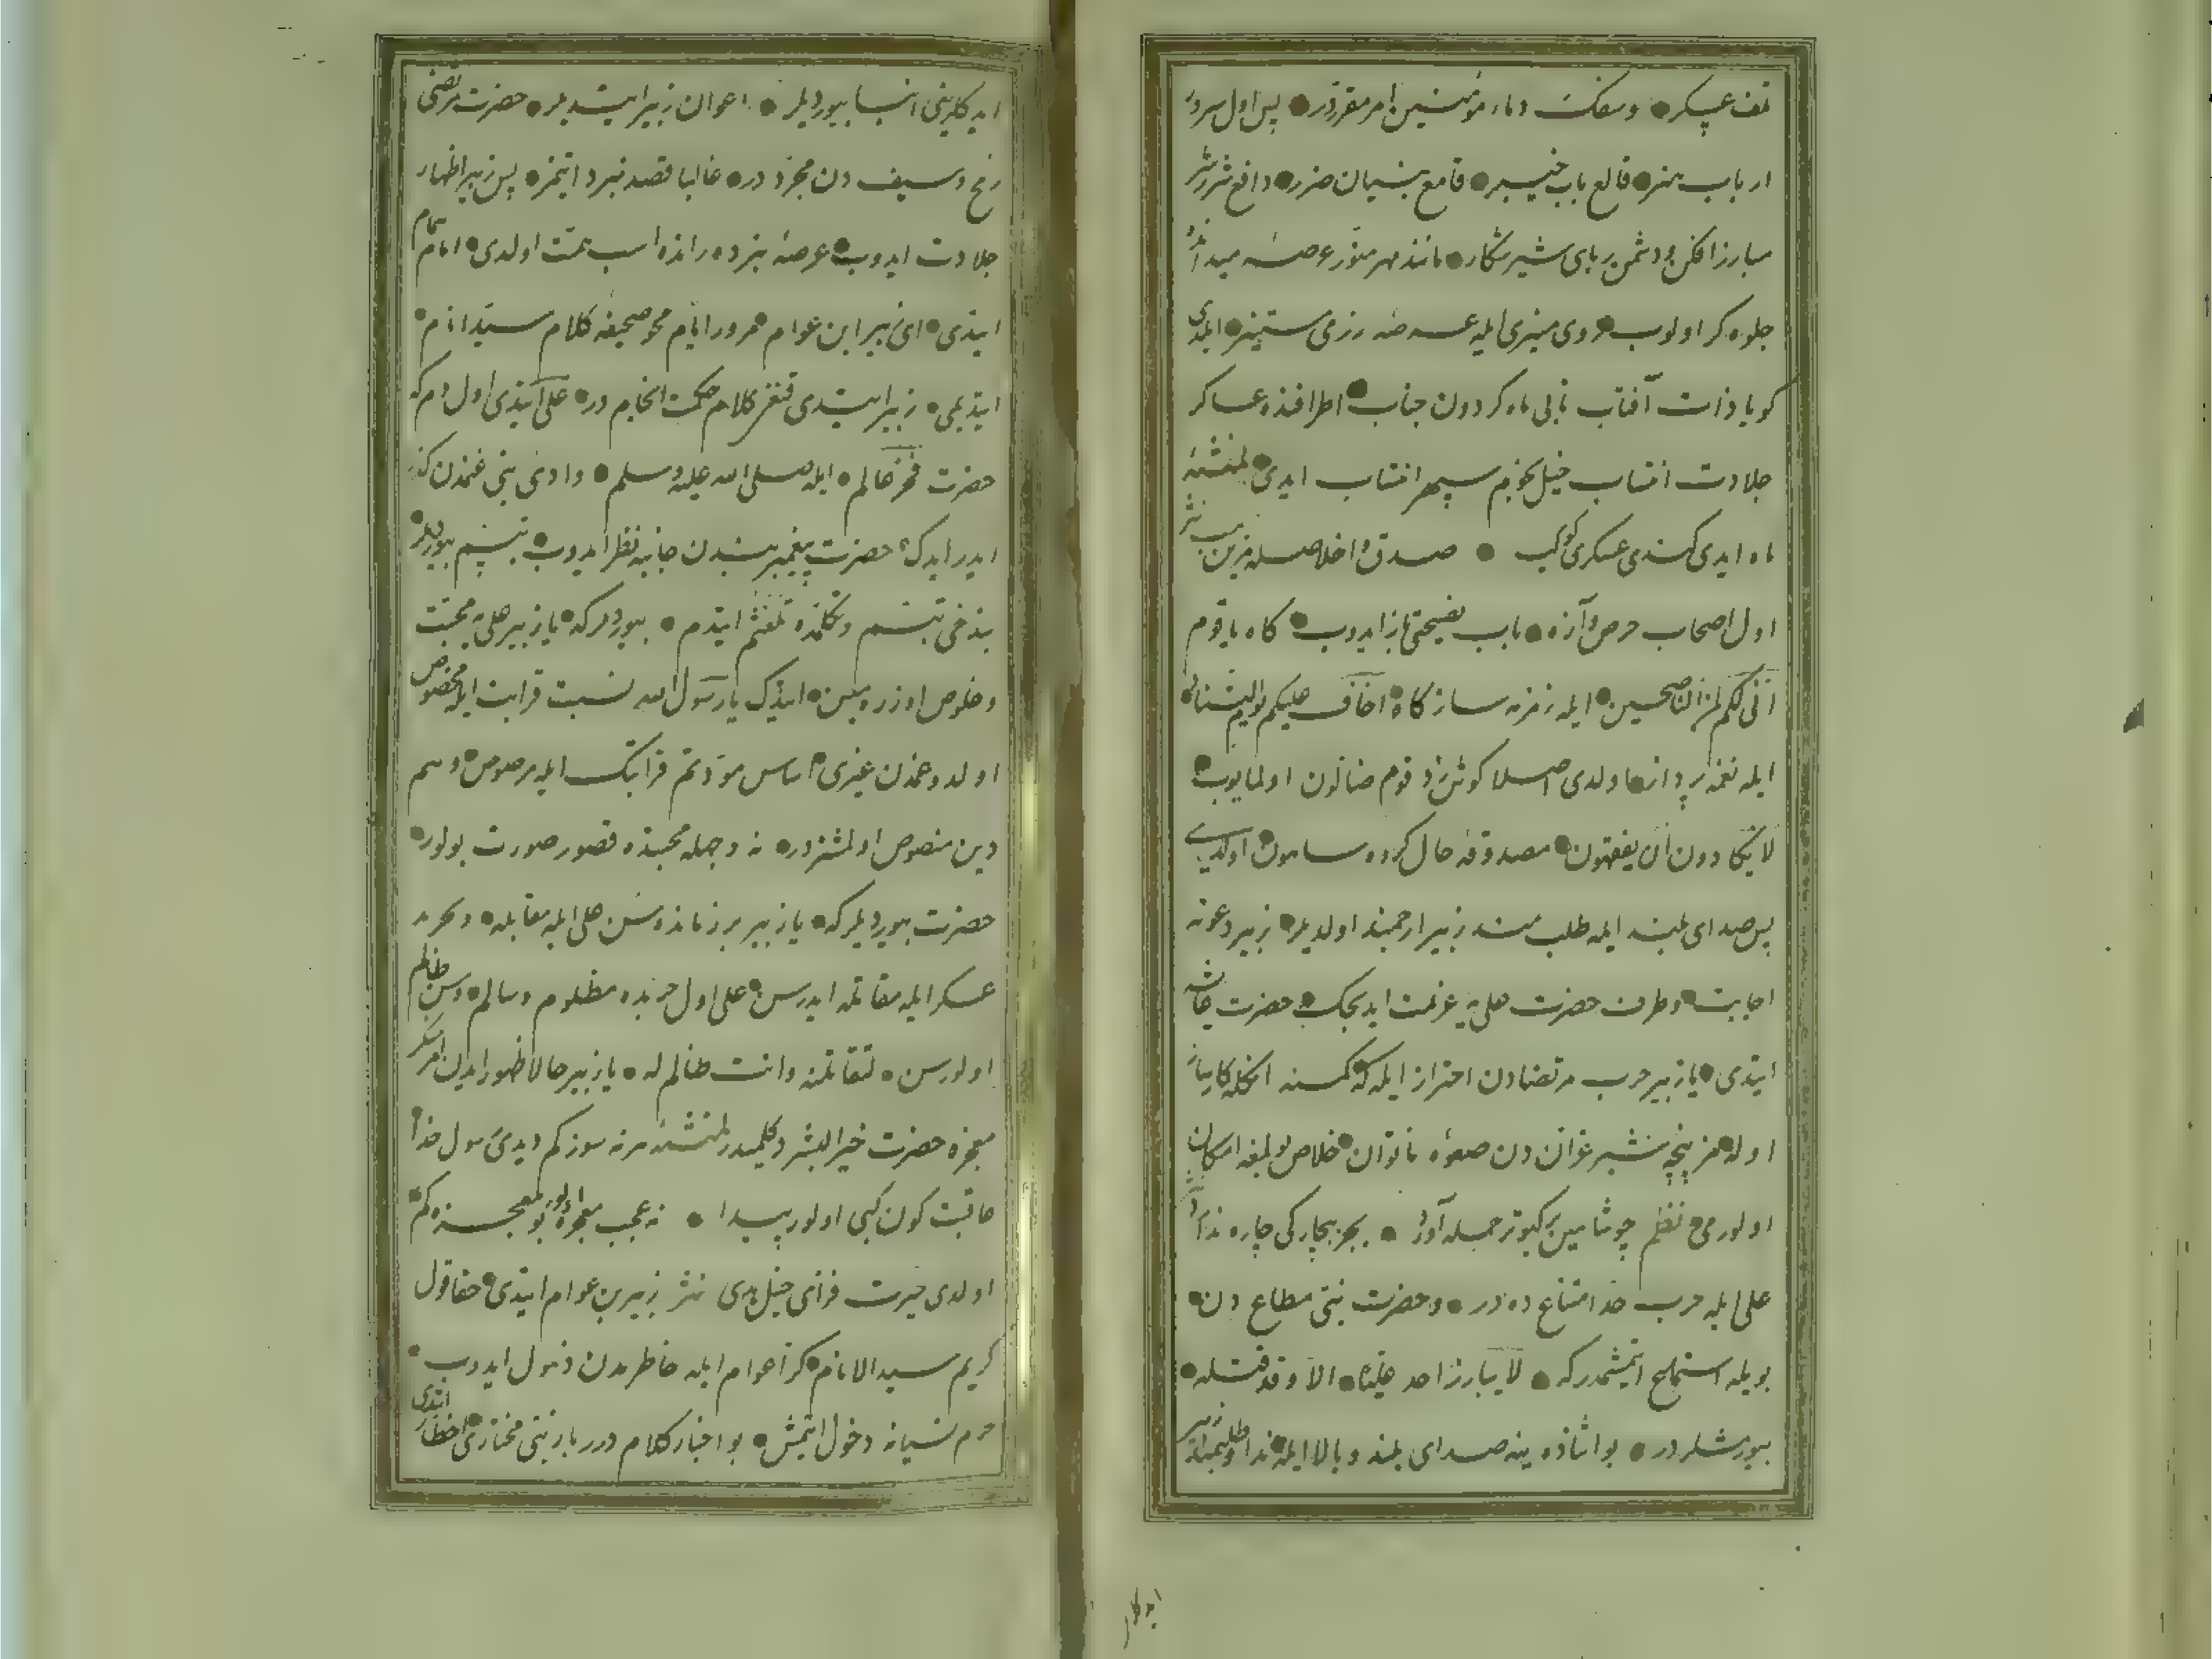 تلف عسكر و سفك دماء مؤمنین امر مقرردر پس اول سرور
ارباب هنر قالع باب خیبر قامع بنیان ضرر دافع شور و شر
مبارز افکن و دشمن ربای شیر شکار مانند مهر منور عرصۀ میدانده
جلوه کر اولوب روی منیری ایله عرصۀ رزمی ستنیر ایلدی
کویا ذات آفتاب تابی ماه کردون جناب اطرافنده عساکر
جلادت انتساب خیل نجوم سپهر انتساب ایدی لمنشئه
ماه ایدی کندی عسکری کوکب صدق و اخلاصله مزین نثر
اول اصحاب حرص و آزه باب نصیحتی باز ایدوب کاه یا قوم
انی لکم لمن الناصحین ایله زمزمه ساز کاه اخاف علیکم یوم التناد
ایله نغمه پرداز اولدی اصلا کوش زد قوم ضالون اولمایوب
لا یکادون ان یفقهون مصدوقه حال کروه ساهون اولدی
پس صدای بلند ایله طلب مند زبیر ارجمند اولدیلر زبیر دعوته
اجابت و طرف حضرت علی یه عزیمت ایدیجک حضرت عائشه
ایتدی یا زبیر حرب مرتضادن احتراز ایله که کمسنه انکله
اوله مز پنجۀ شیر غراندن صعوه ناتوان خلاص بولمغه امکان
اولورمی نظم چو شاهین بر کبوتر حمله آورد بجز بیچارکی چاره ندارد
علی ایله حرب خدا امتناع ده در و حضرت نبی مطاع دن
بویله استماع ایتمشمدرکه لا یبارز احد علیا الا وقد قتله
بیورمشلردر بو اثناده ینه صدای بلند و بالا ایله ندا و طلب زبیر
ایدکلرینی
ایدکلرینی انبا بیوردیلر اعوان زبیر ایتدیلر حضرت مرتضی
رمح و سیف دن مجرد در غالبا قصد نبرد ایتمز پس زبیر اظهار
جلادت ایدوب عرصۀ نبرده رانندۀ اسب همت اولدی امام همام
ایتدی ای زبیر ابن عوام مرور ایام محو صحیفۀ کلام سید انام
ایتدیمی زبیر ایتدی قنغی کلام حکمت انجام در علی ایتدی اول دم که
حضرت فخر عالم ایله صلی الله علیه وسلم وادی بنی غنمدن کذر
ایدر ایدک حضرت پیغمبر بندن جانبه نظر ایدوب تبسم بیوردیلر
بن دخی تبسم و تکلمده تلعثم ایتدم بیوردیلرکه یا زبیر علی یه محبت
و خلوص اوزره میسن ایتدک یا رسول الله نسبت قرابت ایله مخصوص
اولدوغمدن غیری اساس مودتم قرابتک ایله مرصوص و هم
دین منصوص اولمشزدر نه وجهله محبتده قصور صورت بولور
حضرت بیوردیلرکه یا زبیر بر زمانده سن علی ایله مقابله و
عسکر ایله مقاتله ایدرسن علی اول حربده مظلوم و سالم و سن ظالم
اولورسن لتقاتلنه وانت ظالم له یا زبیر حالا ظهور ایدن امر منکر
معجزۀ حضرت خیر البشر دکلمیدر لمنشئه هر نه سوز کم دیدی رسول خدا
عاقبت کون کبی اولور پیدا نه عجب معجزه اولور بو معجزه کم
اولدی حیرت فزای خیل هدی نثر زبیر بن عوام ایتدی حقا قول
کریم سید الانام کر اعوام ایله خاطرمدن ذهول ایدوب
حرم نسیانه دخول ایتمش بو اخبار کلام درر بار نبی مختاری اخطار ایتدی